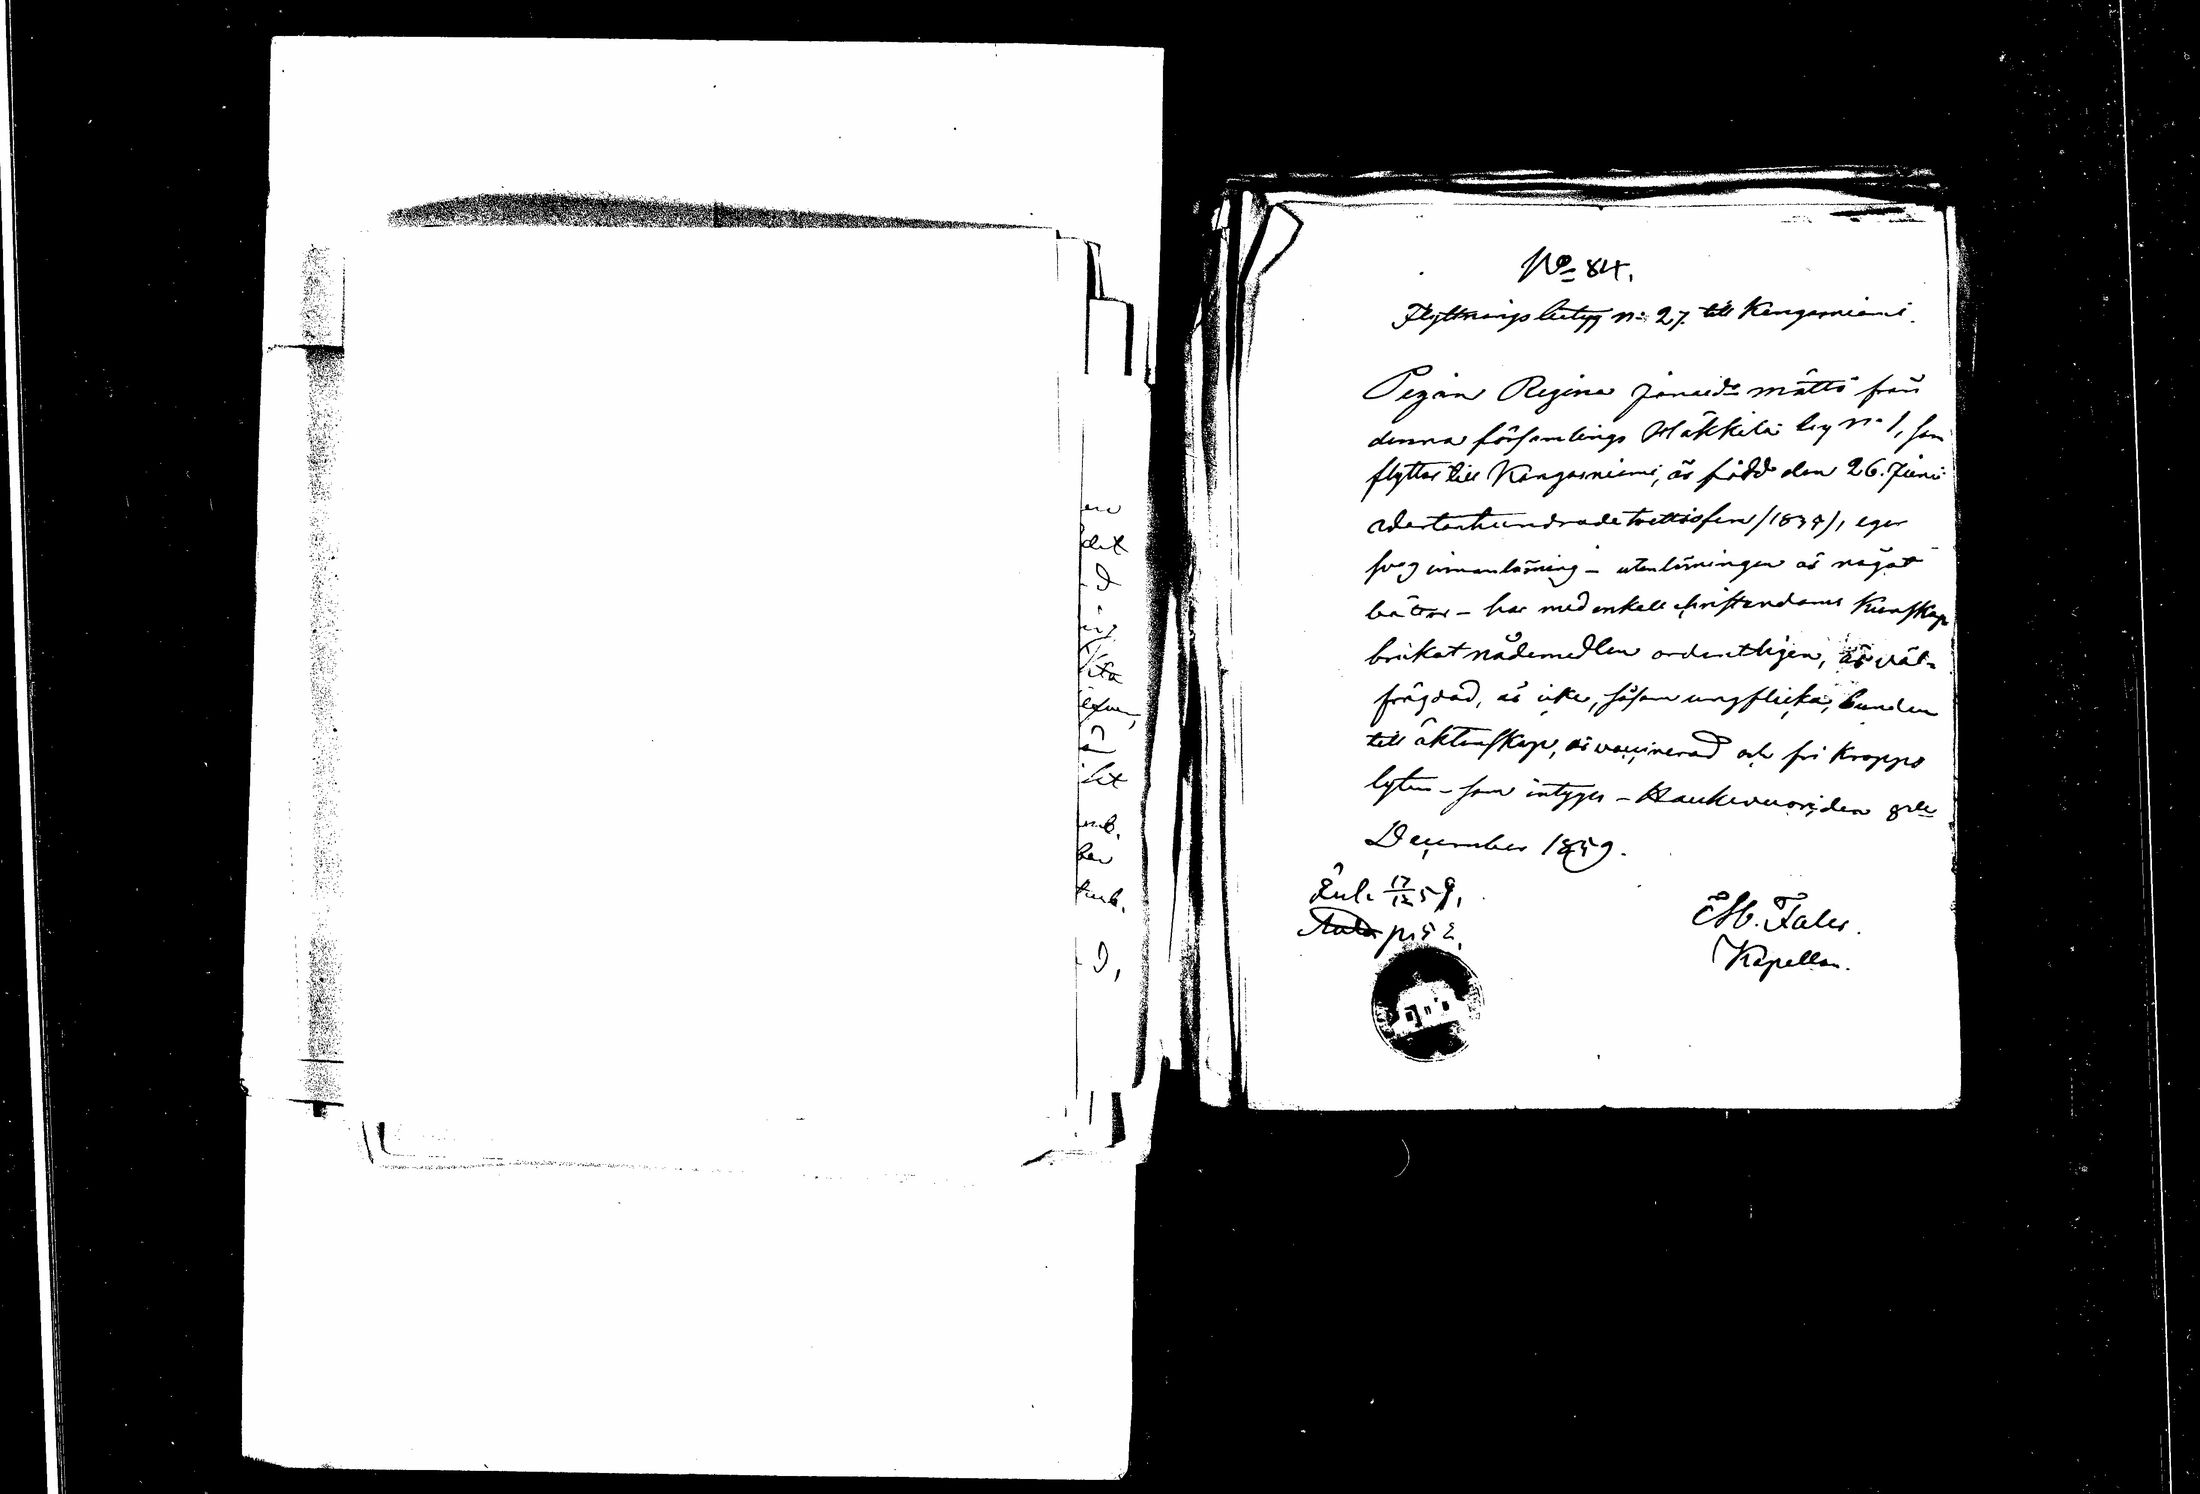 det
No 84.
Flyttningsbetyg n: 27. till Kangasniemi.
Pigan Regina från
denna församlings Häkkilä by No 1, som
flyttar till Kangasniemi, är född den 26. Juni
adertonhundrade trettiofem /1835/, eger
svag innanläsning - utanläsningen är något
bättre - har med enkell christendoms kunskap
brukat nådemedlen ordentligen, är väl-
frägdad, är icke, såsom ung flicka, bunden
till äktenskap, är vaccinerad och fri kropps
lyten - som intygas - Haukivuori, den 8de
December 1859.
17/12 59.
Faler.
Kapellan.